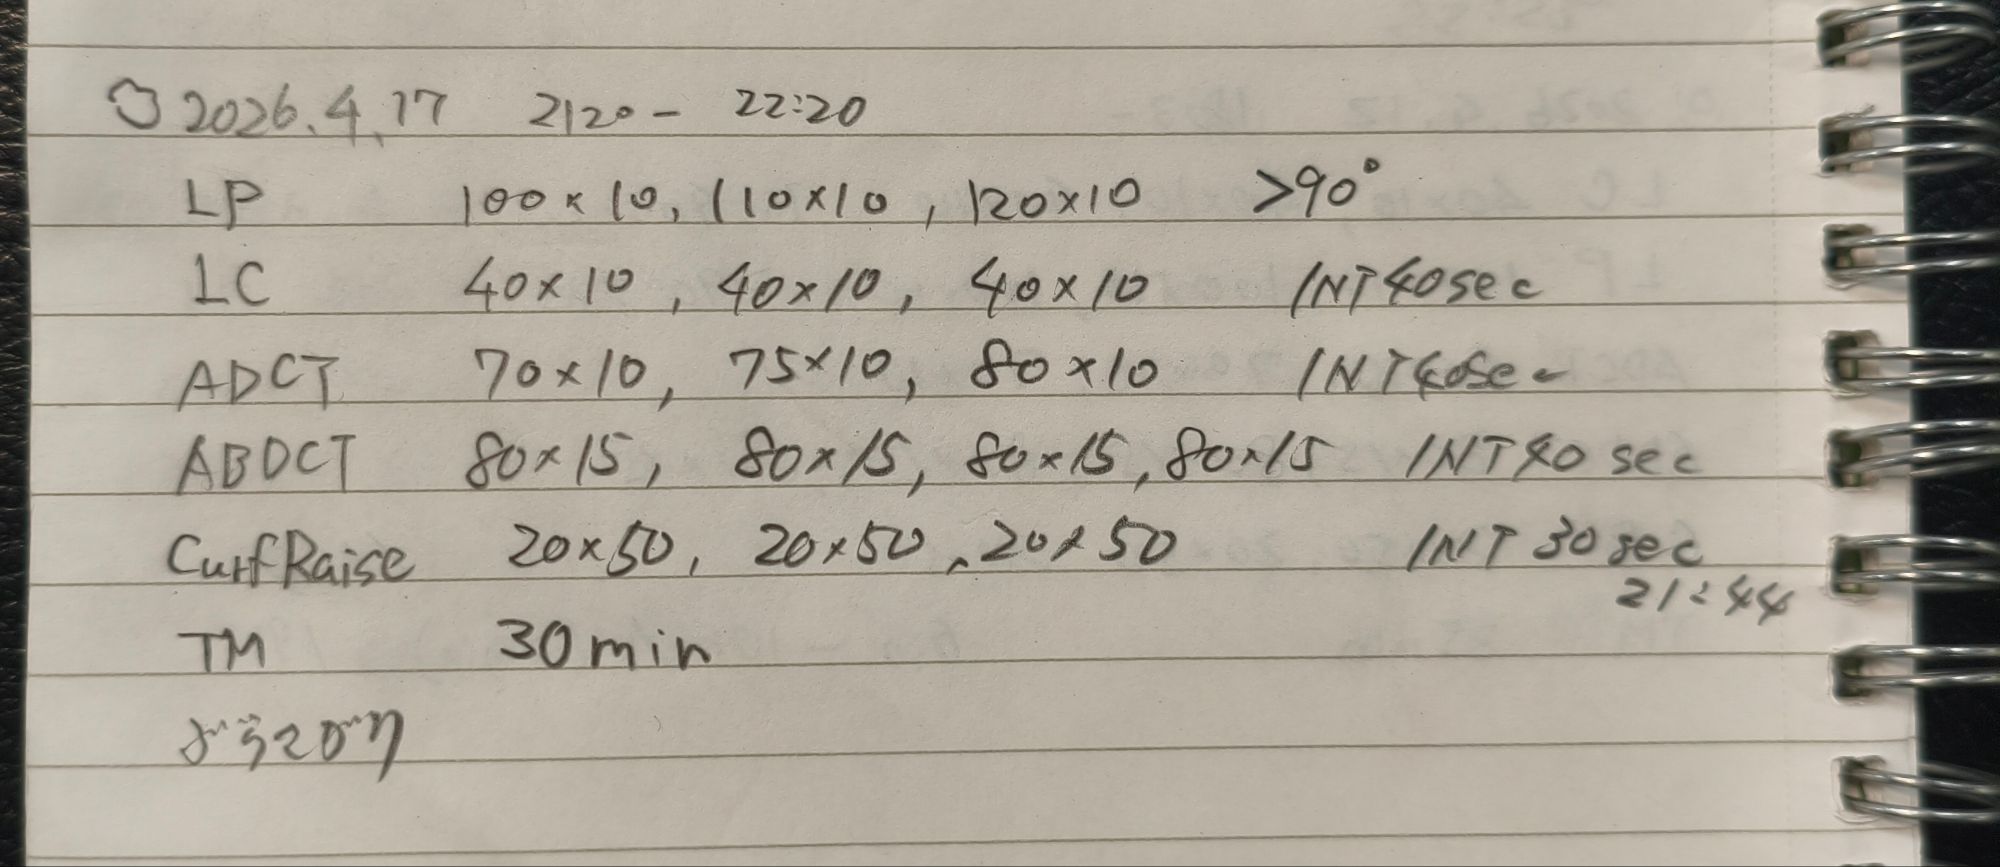 2026.4.17 2120- 22:20
LP 100×10, 110×10, 120×10 >90°
LC 40×10, 40×10, 40×10 INT40sec
ADCT 70×10, 75×10, 80×10 INT40sec
ABDCT 80×15, 80×15, 80×15, 80×15 INT40 sec
CurfRaise 20×50, 20×50, 20×50 INT 30sec
21:44
TM 30min